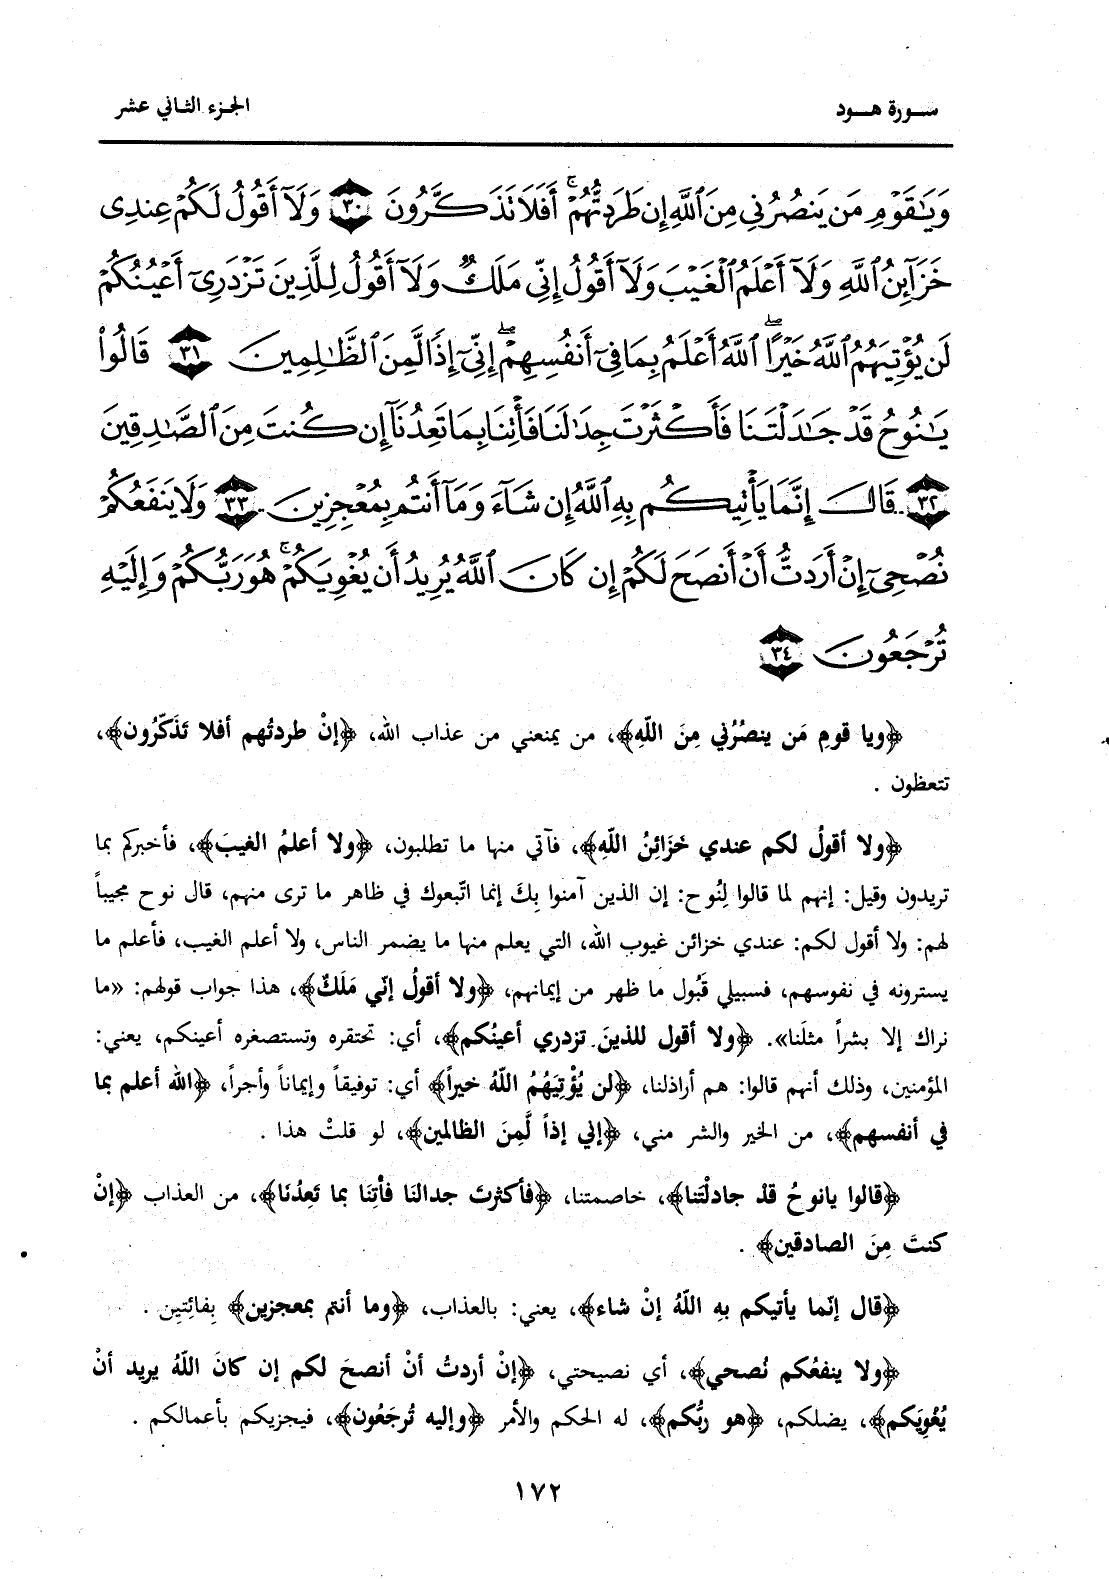 سورة هود
الجزء الثاني عشر
وَيَٰقَوْمِ مَن يَنصُرُنِي مِنَ ٱللَّهِ إِن طَرَدتُّهُمْۚ أَفَلَا تَذَكَّرُونَ ٣٠ وَلَآ أَقُولُ لَكُمْ عِندِى
خَزَآئِنُ ٱللَّهِ وَلَآ أَعْلَمُ ٱلْغَيْبَ وَلَآ أَقُولُ إِنِّى مَلَكٌ وَلَآ أَقُولُ لِلَّذِينَ تَزْدَرِىٓ أَعْيُنُكُمْ
لَن يُؤْتِيَهُمُ ٱللَّهُ خَيْرًاۖ ٱللَّهُ أَعْلَمُ بِمَا فِىٓ أَنفُسِهِمْۖ إِنِّىٓ إِذًا لَّمِنَ ٱلظَّٰلِمِينَ ٣١ قَالُوا۟
يَٰنُوحُ قَدْ جَٰدَلْتَنَا فَأَكْثَرْتَ جِدَٰلَنَا فَأْتِنَا بِمَا تَعِدُنَآ إِن كُنتَ مِنَ ٱلصَّٰدِقِينَ
٣٢ قَالَ إِنَّمَا يَأْتِيكُم بِهِ ٱللَّهُ إِن شَآءَ وَمَآ أَنتُم بِمُعْجِزِينَ ٣٣ وَلَا يَنفَعُكُمْ
نُصْحِىٓ إِنْ أَرَدتُّ أَنْ أَنصَحَ لَكُمْ إِن كَانَ ٱللَّهُ يُرِيدُ أَن يُغْوِيَكُمْۚ هُوَ رَبُّكُمْ وَإِلَيْهِ
تُرْجَعُونَ ٣٤
﴿ويا قومِ مَن ينصُرُني مِنَ اللّهِ﴾، من يمنعني من عذاب الله، ﴿إنْ طردتُهم أفلا تَذَكّرُون﴾،
تتعظون .
﴿ولا أقولُ لكم عندي خَزائِنُ اللّهِ﴾، فآتي منها ما تطلبون، ﴿ولا أعلمُ الغيبَ﴾، فأخبركم بما
تريدون وقيل: إنهم لما قالوا لِنُوح: إن الذين آمنوا بِكَ إنما اتّبعوك في ظاهر ما ترى منهم، قال نوح مجيباً
لهم: ولا أقول لكم: عندي خزائن غيوب الله، التي يعلم منها ما يضمر الناس، ولا أعلم الغيب، فأعلم ما
يسترونه في نفوسهم، فسبيلي قَبُول ما ظهر من إيمانهم، ﴿ولا أقولُ إنّي مَلَكٌ﴾، هذا جواب قولهم: «ما
نراك إلا بشراً مثلَنا». ﴿ولا أقول للذينَ تزدري أعينُكم﴾، أي: تحتقره وتستصغره أعينكم، يعني:
المؤمنين، وذلك أنهم قالوا: هم أراذلنا، ﴿لن يُؤْتِيَهُمُ اللّهُ خيراً﴾ أي: توفيقاً وإيماناً وأجراً، ﴿الله أعلم بما
في أنفسهم﴾، من الخير والشر مني، ﴿إني إذاً لَّمِنَ الظالمين﴾، لو قلتْ هذا .
﴿قالوا يانوحُ قدْ جادلْتَنا﴾، خاصمتنا، ﴿فأكثرتَ جدالنَا فأتِنَا بما تَعِدُنَا﴾، من العذاب ﴿إنْ
كنتَ مِنَ الصادقين﴾ .
﴿قال إنّما يأتيكم بهِ اللّهُ إنْ شاء﴾، يعني: بالعذاب، ﴿وما أنتم بمعجزين﴾ بِفائِتِين .
﴿ولا ينفعُكم نُصحي﴾، أي نصيحتي، ﴿إنْ أردتُ أنْ أنصحَ لكم إن كانَ اللّهُ يريد أنْ
يُغْوِيَكم﴾، يضلكم، ﴿هو ربُّكم﴾، له الحكم والأمر ﴿وإليه تُرجَعُون﴾، فيجزيكم بأعمالكم .
١٧٢